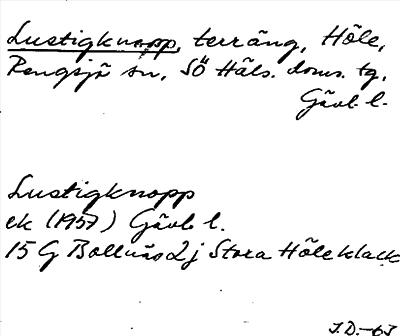 Lustigknopp, terräng, Höle,
Rengsjö sn, SÖ Häls. doms. tg,
Gävl. l.
Lustigknopp
ek (1957) Gävl. l.
15 G Bollnäs 2 j Stora Höleklack
J.D.-63